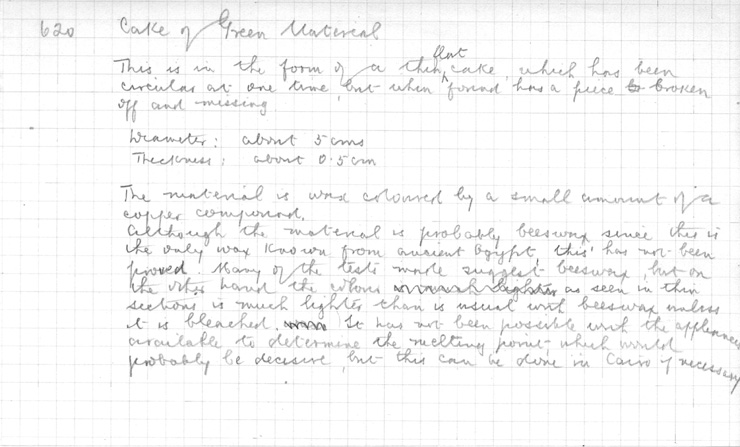 620 Cake of Green Material
This is in the form of a thin, flat cake, which has been
circular at one time, but when found has a piece broken
off and missing
Diameter: about 5 cms
Thickness: about 0.5 cm
The material is wax coloured by a small amount of a
copper compound.
Although the material is probably beeswax since this is
the only wax known from ancient Egypt, this has not been
proved. Many of the tests made suggest beeswax, but on
the other hand the colour as seen in thin
sections is much lighter than is usual with beeswax unless
it is bleached. It has not been possible with the appliances
available to determine the melting point, which would
probably be decisive, but this can be done in Cairo if necessary